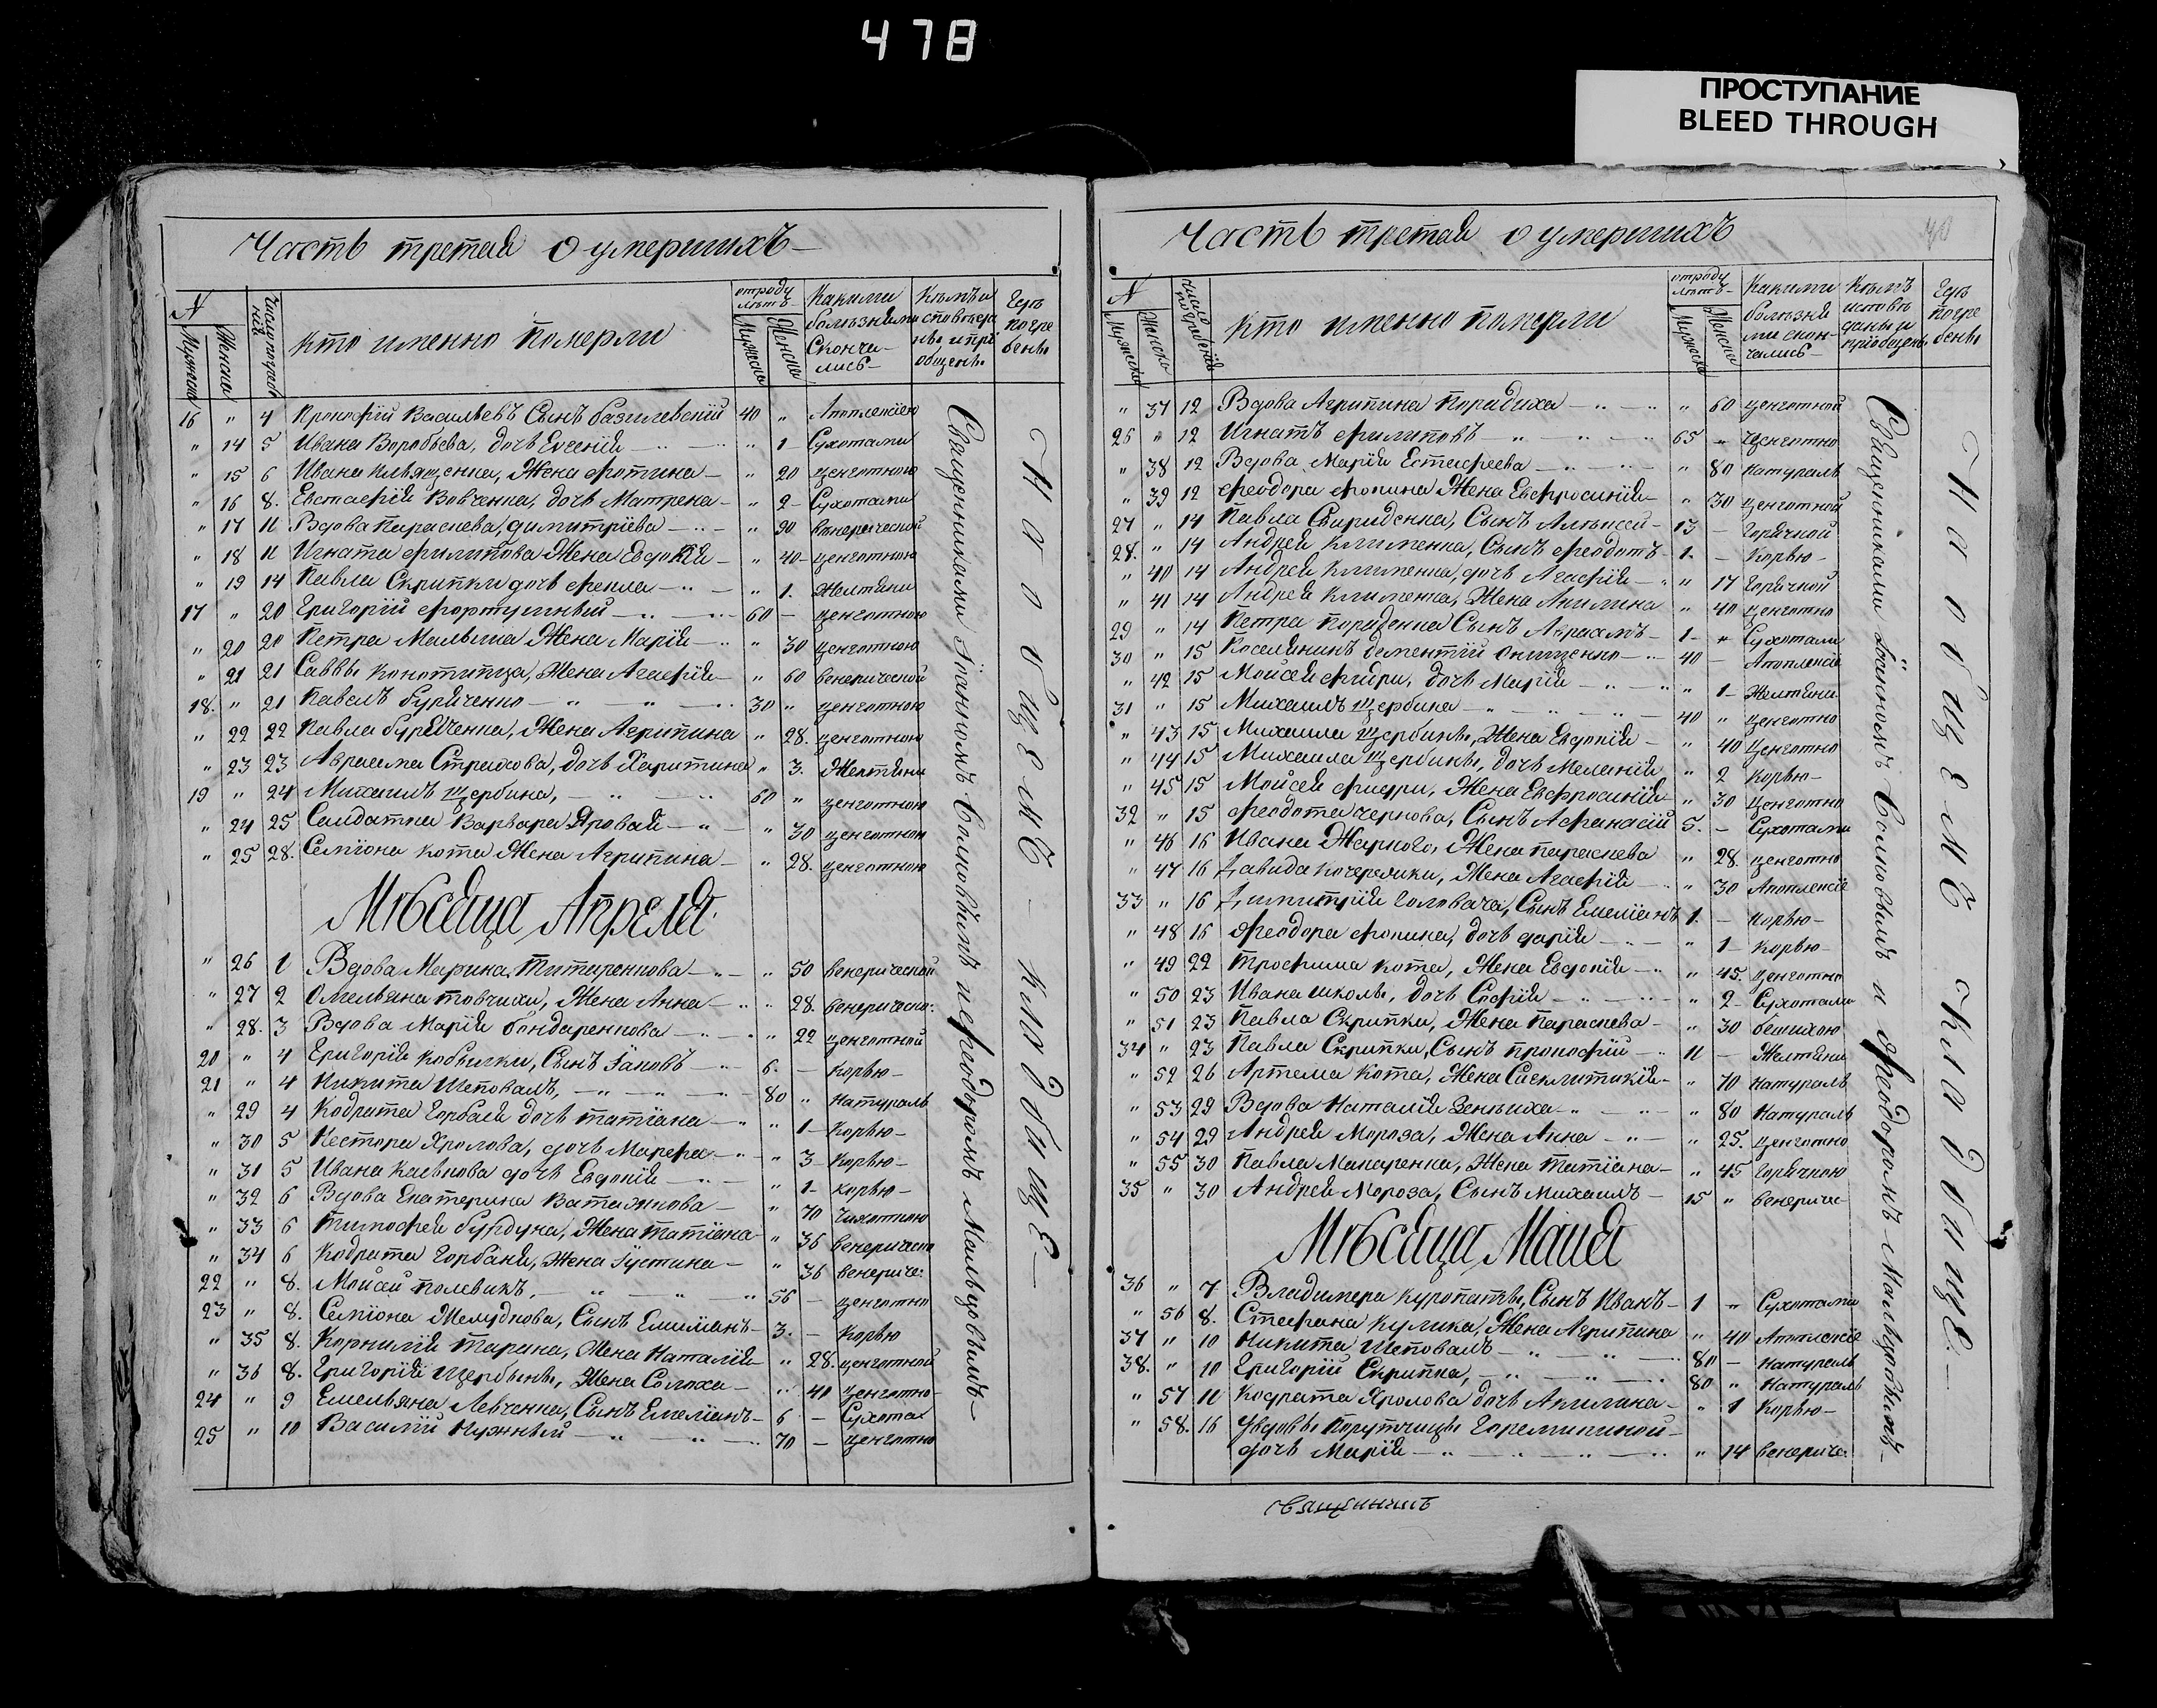 478
ПРОСТУПАНИЕ
BLEED THROUGH
Часть третая о умершихъ
N
Мужеска
Женска
Число погребеній
Кто именно померли
отроду лѣтъ
Мужеска
Женска
Какими болѣзнями скончались
Кѣмъ исповѣданы и пріобщены
Гдѣ погребены
16 " 4 Прокофій Васильевъ Сынъ базилевскій 40 " Апоплексіею
" 14 5 Ивана Воробьева, дочь Евгенія " 1 Сухотами
" 15 6 Ивана Клѣященка, Жена Фотина " 20 ценготною
" 16 8. Евстафія Вовченка, дочь Матрена " 2 Сухотами
" 17 11 Вдова Параскева, димитріева " 90 венерической
" 18 11 Игната Филипова Жена Евдокія " 40 ценготною
" 19 14 Павла Скрипки дочь Фекла " 1. Желтяни
17 " 20 Григорій Фортушный 60 - ценготною
" 20 20 Петра Малыша Жена Марія " 30 ценготною
" 21 21 Саввы Конотопца, Жена Агафія " 60 венерической
18. " 21 Павелъ буряченко 30 " ценготною
" 22 22 Павла буряченка, Жена Агрипина " 28. ценготною
" 23 23 Авраама Страхова, дочь Харитина " 3. Желтяни
19 " 24 Михаилъ Щербина, 60 " ценготною
" 24 25 Салдатка Варвара Яровая " 30 ценготною
" 25 28. Семіона Кота Жена Агрипина " 28. ценготною
Мѣсяца Апреля
" 26 1 Вдова Марина Титаренкова " 50 венерической
" 27 2 Омельяна товчихи, Жена Анна " 28. венерическо:
" 28. 3 Вдова Марія бондаренкова " 22 ценготной
20 " 4 Григорія Кобылки, Сынъ Іаковъ 6. - Корью
21 " 4 Никита Шеповалъ, 80 " Натураль
" 29 4 Кодрата Горбаня дочь татіана " 1 Корью
" 30 5 Нестора Хролова, дочь Марфа " 3 Корью
" 31 5 Ивана Каевкова дочь Евдокія " 1 Корью
" 32 6 Вдова Екатерина Ватажкова " 70 Чихотною
" 33 6 тимофея бурдуна, Жена татіана " 36 венерическо
" 34 6 Кодрата Горбаня, Жена Іустина " 36 венериче:
22 " 8. Моисей полевикъ, 56 - ценготно
23 " 8. Семіона Желудкова, Сынъ Емиліанъ 3. - Корью
" 35 8. Корнилія тарана, Жена Наталія " 28. ценготной
" 36 8. Григорія Щербины, Жена Солоха " 40 ценготно
24 " 9 Емельяна Левченка, Сынъ Емеліанъ 6 - Сухота
25 " 10 Василій Нужный 70 - ценготно
Священникомъ Іоанномъ Соловьемъ и Феодоромъ Мальцовымъ
На общемъ кладбищѣ
Часть третая о умершихъ
40
N
Мужеска
Женска
Число погребеній
Кто именно померли
отроду лѣтъ
Мужеска
Женска
Какими болѣзнями скончались
Кѣмъ исповѣданы и пріобщены
Гдѣ погребены
" 37 12 Вдова Агрипина Порадиха " 60 ценготной
26 " 12 Игнатъ Филиповъ 65 " Ценготно
" 38 12 Вдова Марія Естафеева " 80 натураль
" 39 12 Феодора Фокина Жена Евфросинія " 30 ценготной
27 " 14 Павла Свириденка, Сынъ Алексей 13 - Горячной
28. " 14 Андрея Клименка, Сынъ Феодотъ 1. - Корью
" 40 14 Андрея Клименка, дочь Агафія " 17 Горячной
" 41 14 Андрея Клименка, Жена Акилина " 40 ценготно
29 " 14 Петра Пораденка Сынъ Авраамъ 1 " Сухотами
30 " 15 Поселянинъ дементій Онищенко 40 - Апоплексіе
" 42 15 Мойсея Фидри, дочь Марія " 1 Желтяни
31 " 15 Михаилъ Щербина 40 " ценготно
" 43 15 Михаила Щербины, Жена Евдокія " 40 Ценготно
" 44 15 Михаила Щербины, дочь Меланія " 2 Корью
" 45 15 Мойсея Фидри, Жена Евфросинія " 30 Ценготно
32 " 15 Феодота чернова, Сынъ Афанасій 5. - Сухотами
" 46 16 Ивана Жаркого, Жена параскева " 28. ценготно
" 47 16 Давида Кочережки, Жена Агафія " 30 Апоплексіе
33 " 16 Димитрія Головача, Сынъ Емеліанъ 1. - Корью
" 48 16 Феодора Фокина, дочь дарія " 1 Корью
" 49 22 Трофима Кота, Жена Евдокія " 45. ценготно
" 50 23 Ивана школы, дочь Софія " 2 Сухотами
" 51 23 Павла Скрипки, Жена Параскева " 30 бешихою
34 " 23 Павла Скрипки, Сынъ прокофій 11 - Желтяни
" 52 26 Артема Кота, Жена Синклитикія " 70 Натураль
" 53 29 Вдова Наталія Зеньиха " 80 Натураль
" 54 29 Андрея Мороза, Жена Анна " 25. ценготно
" 55 30 Павла Макаренка, Жена татіана " 45 Горячною
35 " 30 Андрея Мороза, Сынъ Михаилъ 15 " венериче
Мѣсяца Маия
36 " 7 Владимера Куропатвы, Сынъ Иванъ 1 " Сухотами
" 56 8. Стефана Кулика, Жена Агрипина " 40 Апоплексіе
37 " 10 Никита Шеповалъ 80 - Натураль
38. " 10 Григорій Скрипка, 80 " Натураль
" 57 11 Кодрата Хролова дочь Акилина " 1 Корью
" 58. 16 Удовы Порутчицы Горемикиной
дочь Марія " 14 венериче:
Священниками Іоанномъ Соловьемъ и Феодоромъ Мальцовымъ
На общемъ кладбищѣ.
Священникъ